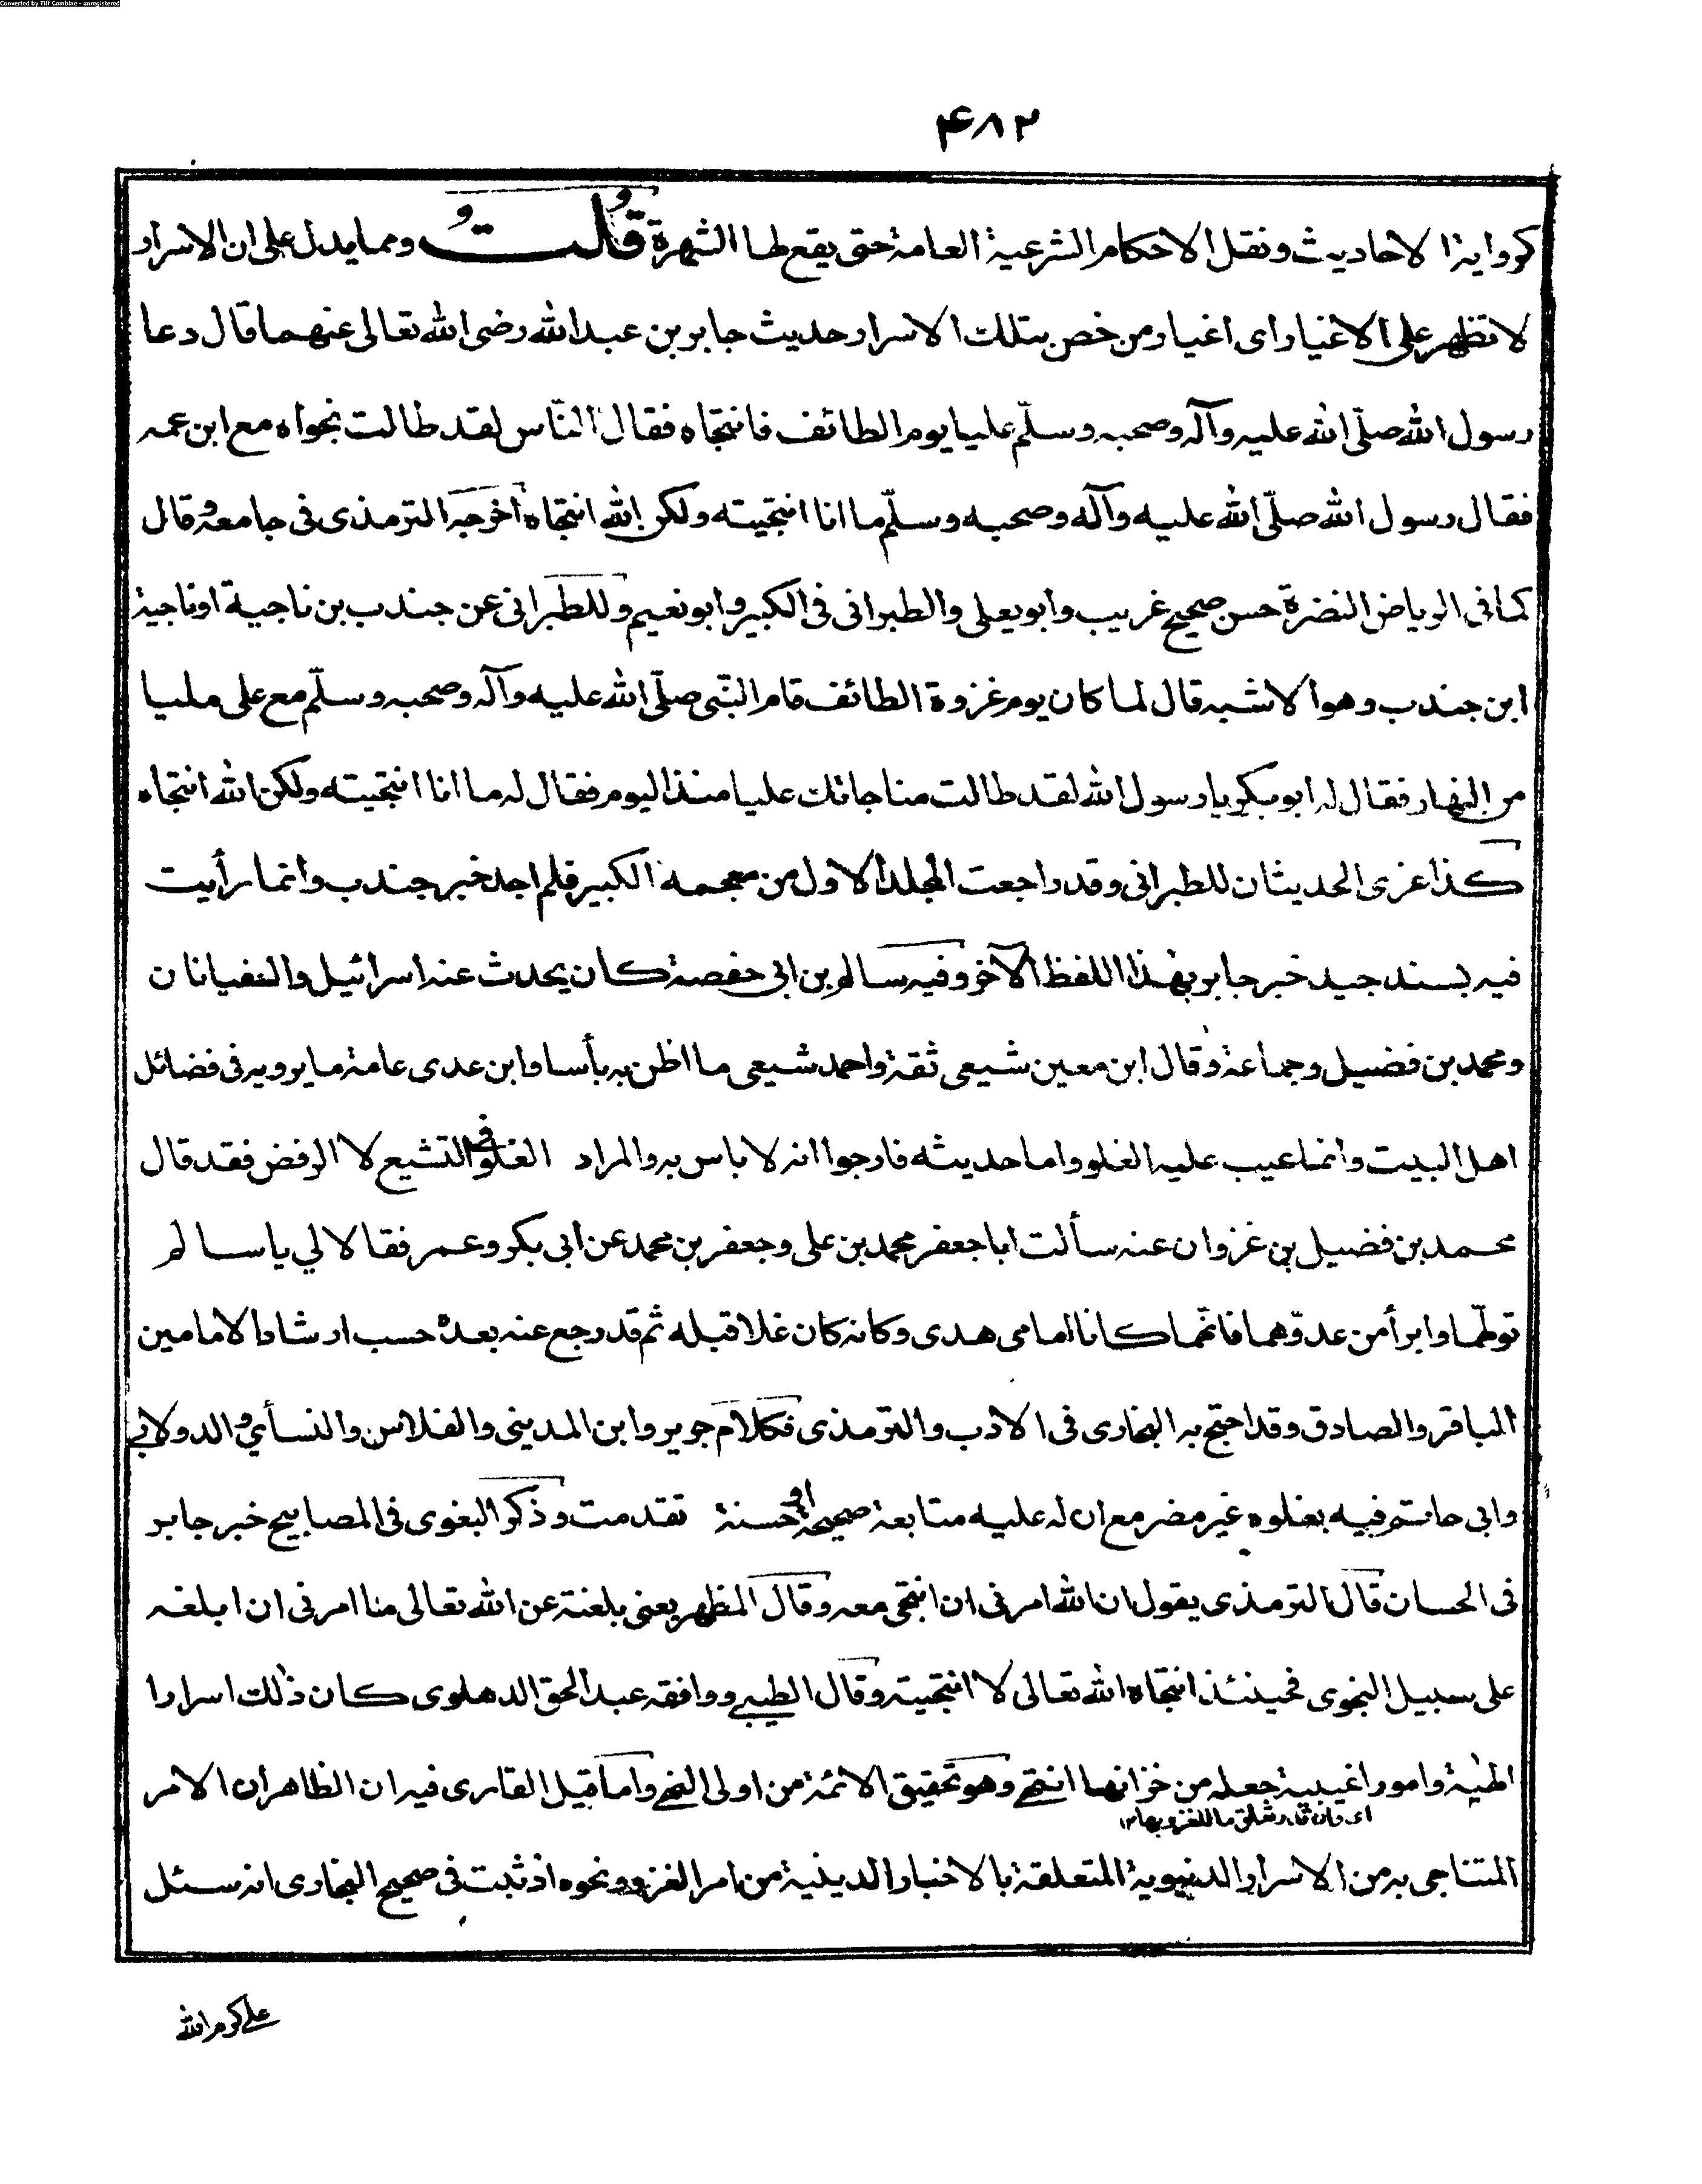 Converted by Tiff Combine - unregistered
۴۸۲
كرواية الاحاديث ونقل الاحكام الشرعية العامة حتى يقع لها الشهرة قُلتُ ومما يدل على ان الاسرار
لا تظهر على الاغيار اى اغيار من خص بتلك الاسرار حديث جابر بن عبد الله رضى الله تعالى عنهما قال دعا
رسول الله صلّى الله عليه وآله وصحبه وسلّم عليا يوم الطائف فانتجاه فقال النّاس لقد طالت نجواه مع ابن عمه
فقال رسول الله صلّى الله عليه وآله وصحبه وسلّم ما انا انتجيته ولكن الله انتجاه اخرجه الترمذى فى جامعه وقال
كما فى الرياض النضرة حسن صحيح غريب وابو يعلى والطبرانى فى الكبير وابو نعيم وللطبرانى عن جندب بن ناجية او ناجية
ابن جندب وهو الاشبه قال لما كان يوم غزوة الطائف قام النّبى صلّى الله عليه وآله وصحبه وسلّم مع على مليا
من النهار فقال له ابو بكر يا رسول الله لقد طالت مناجاتك عليا منذ اليوم فقال له ما انا انتجيته ولكن الله انتجاه
كذا عزى الحديثان للطبرانى وقد راجعت المجلد الاول من معجمه الكبير فلم اجد خبر جندب وانما رأيت
فيه بسند جيد خبر جابر بهذا اللفظ الآخر وفيه سالم بن ابى حفصة كان يحدث عنه اسرائيل والسفيانان
ومحمد بن فضيل وجماعة وقال ابن معين شيعى ثقة واحمد شيعى ما اظن به بأسا وابن عدى عامة ما يرويه فى فضائل
اهل البيت وانما عيب عليه الغلو واما حديثه فارجوا انه لا باس به والمراد الغلو فى التشيع لا الرفض فقد قال
محمد بن فضيل بن غزوان عنه سألت ابا جعفر محمد بن على وجعفر بن محمد عن ابى بكر وعمر فقالا لي يا سالم
تولهما وابرأ من عدوّهما فانهما كانا امامى هدى وكانه كان غلا قبله ثم قد رجع عنه بعده حسب ارشاد الامامين
الباقر والصادق وقد احتج به البخارى فى الادب والترمذى فكلام جرير وابن المدينى والفلاس والنسأي والدولابى
وابى حاتم فيه بغلوه غير مضر مع ان له عليه متابعة صحيحة او حسنة تقدمت وذكر البغوى فى المصابيح خبر جابر
فى الحسان قال الترمذى يقول ان الله امرنى ان انتجى معه وقال المظهر يعنى بلغته عن الله تعالى منا امرنى ان ابلغه
على سبيل النجوى فحينئذ انتجاه الله تعالى لا انتجيته وقال الطيبي ووافقه عبد الحق الدهلوى كان ذلك اسرارا
الهية وامورا غيبية جعله من خزانها انتهى وهو تحقيق الائمة من اولى النهى واما قيل القارى فيه ان الظاهر ان الامر
اى وان قدر تعلق ما للغزو بها ١٢
المتناجى به من الاسرار الدنيوية المتعلقة بالاخبار الدينية من امر الغزو ونحوه اذ ثبت فى صحيح البخارى انه سئل
على كرم الله